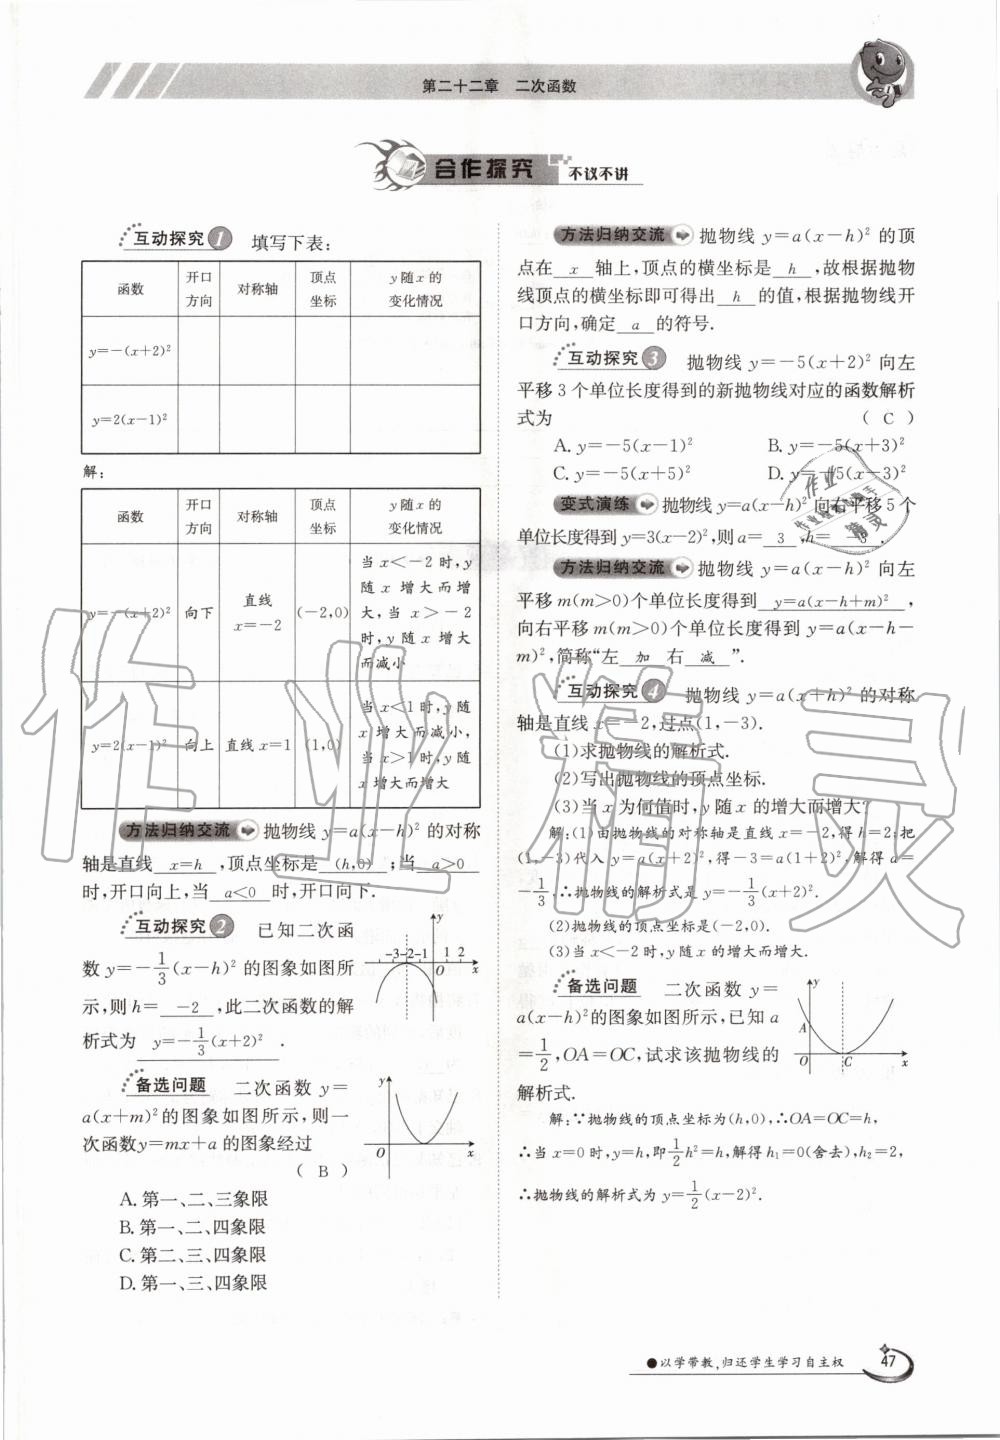 第二十二章 二次函数
合作探究 不议不讲
互动探究1 填写下表:
函数 开口方向 对称轴 顶点坐标 y随x的变化情况
y=-(x+2)²
y=2(x-1)²
解:
函数 开口方向 对称轴 顶点坐标 y随x的变化情况
y=-(x+2)² 向下 直线x=-2 (-2,0) 当x<-2时,y随x增大而增大,当x>-2时,y随x增大而减小
y=2(x-1)² 向上 直线x=1 (1,0) 当x<1时,y随x增大而减小,当x>1时,y随x增大而增大
方法归纳交流 抛物线y=a(x-h)²的对称
轴是直线 x=h ,顶点坐标是 (h,0) ;当 a>0
时,开口向上,当 a<0 时,开口向下.
互动探究2 已知二次函
数y=-1/3(x-h)²的图象如图所
示,则h= -2 ,此二次函数的解
析式为 y=-1/3(x+2)² .
y
-3-2-1 1 2
O x
备选问题 二次函数y=
a(x+m)²的图象如图所示,则一
次函数y=mx+a的图象经过
( B )
y
O x
A.第一、二、三象限
B.第一、二、四象限
C.第二、三、四象限
D.第一、三、四象限
方法归纳交流 抛物线y=a(x-h)²的顶
点在 x 轴上,顶点的横坐标是 h ,故根据抛物
线顶点的横坐标即可得出 h 的值,根据抛物线开
口方向,确定 a 的符号.
互动探究3 抛物线y=-5(x+2)²向左
平移3个单位长度得到的新抛物线对应的函数解析
式为 ( C )
A.y=-5(x-1)² B.y=-5(x+3)²
C.y=-5(x+5)² D.y=-5(x-3)²
变式演练 抛物线y=a(x-h)²向右平移5个
单位长度得到y=3(x-2)²,则a= 3 ,h= -3 .
方法归纳交流 抛物线y=a(x-h)²向左
平移m(m>0)个单位长度得到 y=a(x-h+m)² ,
向右平移m(m>0)个单位长度得到y=a(x-h-
m)²,简称“左 加 右 减 ”.
互动探究4 抛物线y=a(x+h)²的对称
轴是直线x=-2,过点(1,-3).
(1)求抛物线的解析式.
(2)写出抛物线的顶点坐标.
(3)当x为何值时,y随x的增大而增大?
解:(1)由抛物线的对称轴是直线x=-2,得h=2;把
(1,-3)代入y=a(x+2)²,得-3=a(1+2)²,解得a=
-1/3,∴抛物线的解析式是y=-1/3(x+2)².
(2)抛物线的顶点坐标是(-2,0).
(3)当x<-2时,y随x的增大而增大.
备选问题 二次函数y=
a(x-h)²的图象如图所示,已知a
=1/2,OA=OC,试求该抛物线的
解析式.
y
A
O C x
解:∵抛物线的顶点坐标为(h,0),∴OA=OC=h,
∴当x=0时,y=h,即1/2h²=h,解得h₁=0(舍去),h₂=2,
∴抛物线的解析式为y=1/2(x-2)².
●以学带教,归还学生学习自主权
47
作业精灵